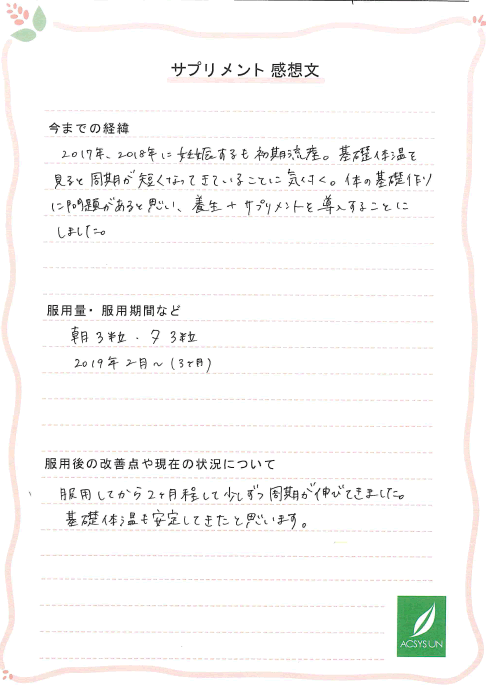 サプリメント 感想文
今までの経緯
2017年、2018年に妊娠するも初期流産。基礎体温を
見ると周期が短くなってきていることに気付く。体の基礎作り
に問題があると思い、養生+サプリメントを導入することに
しました。
服用量・服用期間など
朝3粒・夕3粒
2019年2月〜(3ヶ月)
服用後の改善点や現在の状況について
服用してから2ヶ月程して少しずつ周期が伸びてきました。
基礎体温も安定してきたと思います。
ACSYSUN